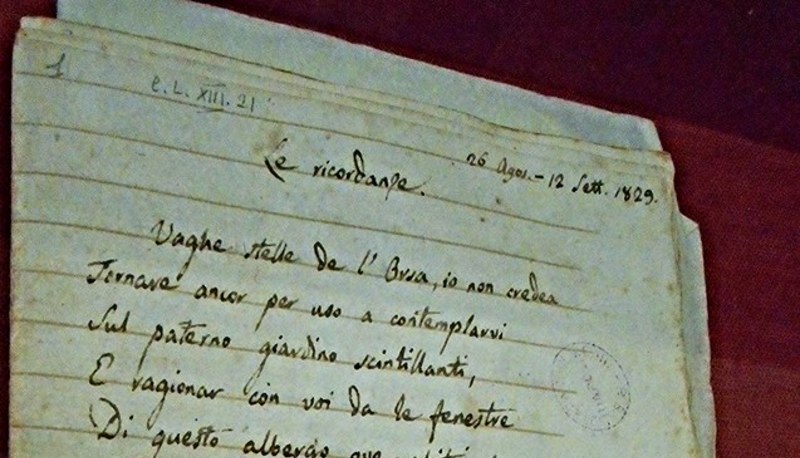 1
C. L. XIII. 21
Le ricordanze.
26 Agos. - 12 Sett. 1829.
Vaghe stelle de l' Orsa, io non credea
Tornare ancor per uso a contemplarvi
Sul paterno giardino scintillanti,
E ragionar con voi da le fenestre
Di questo albergo ove